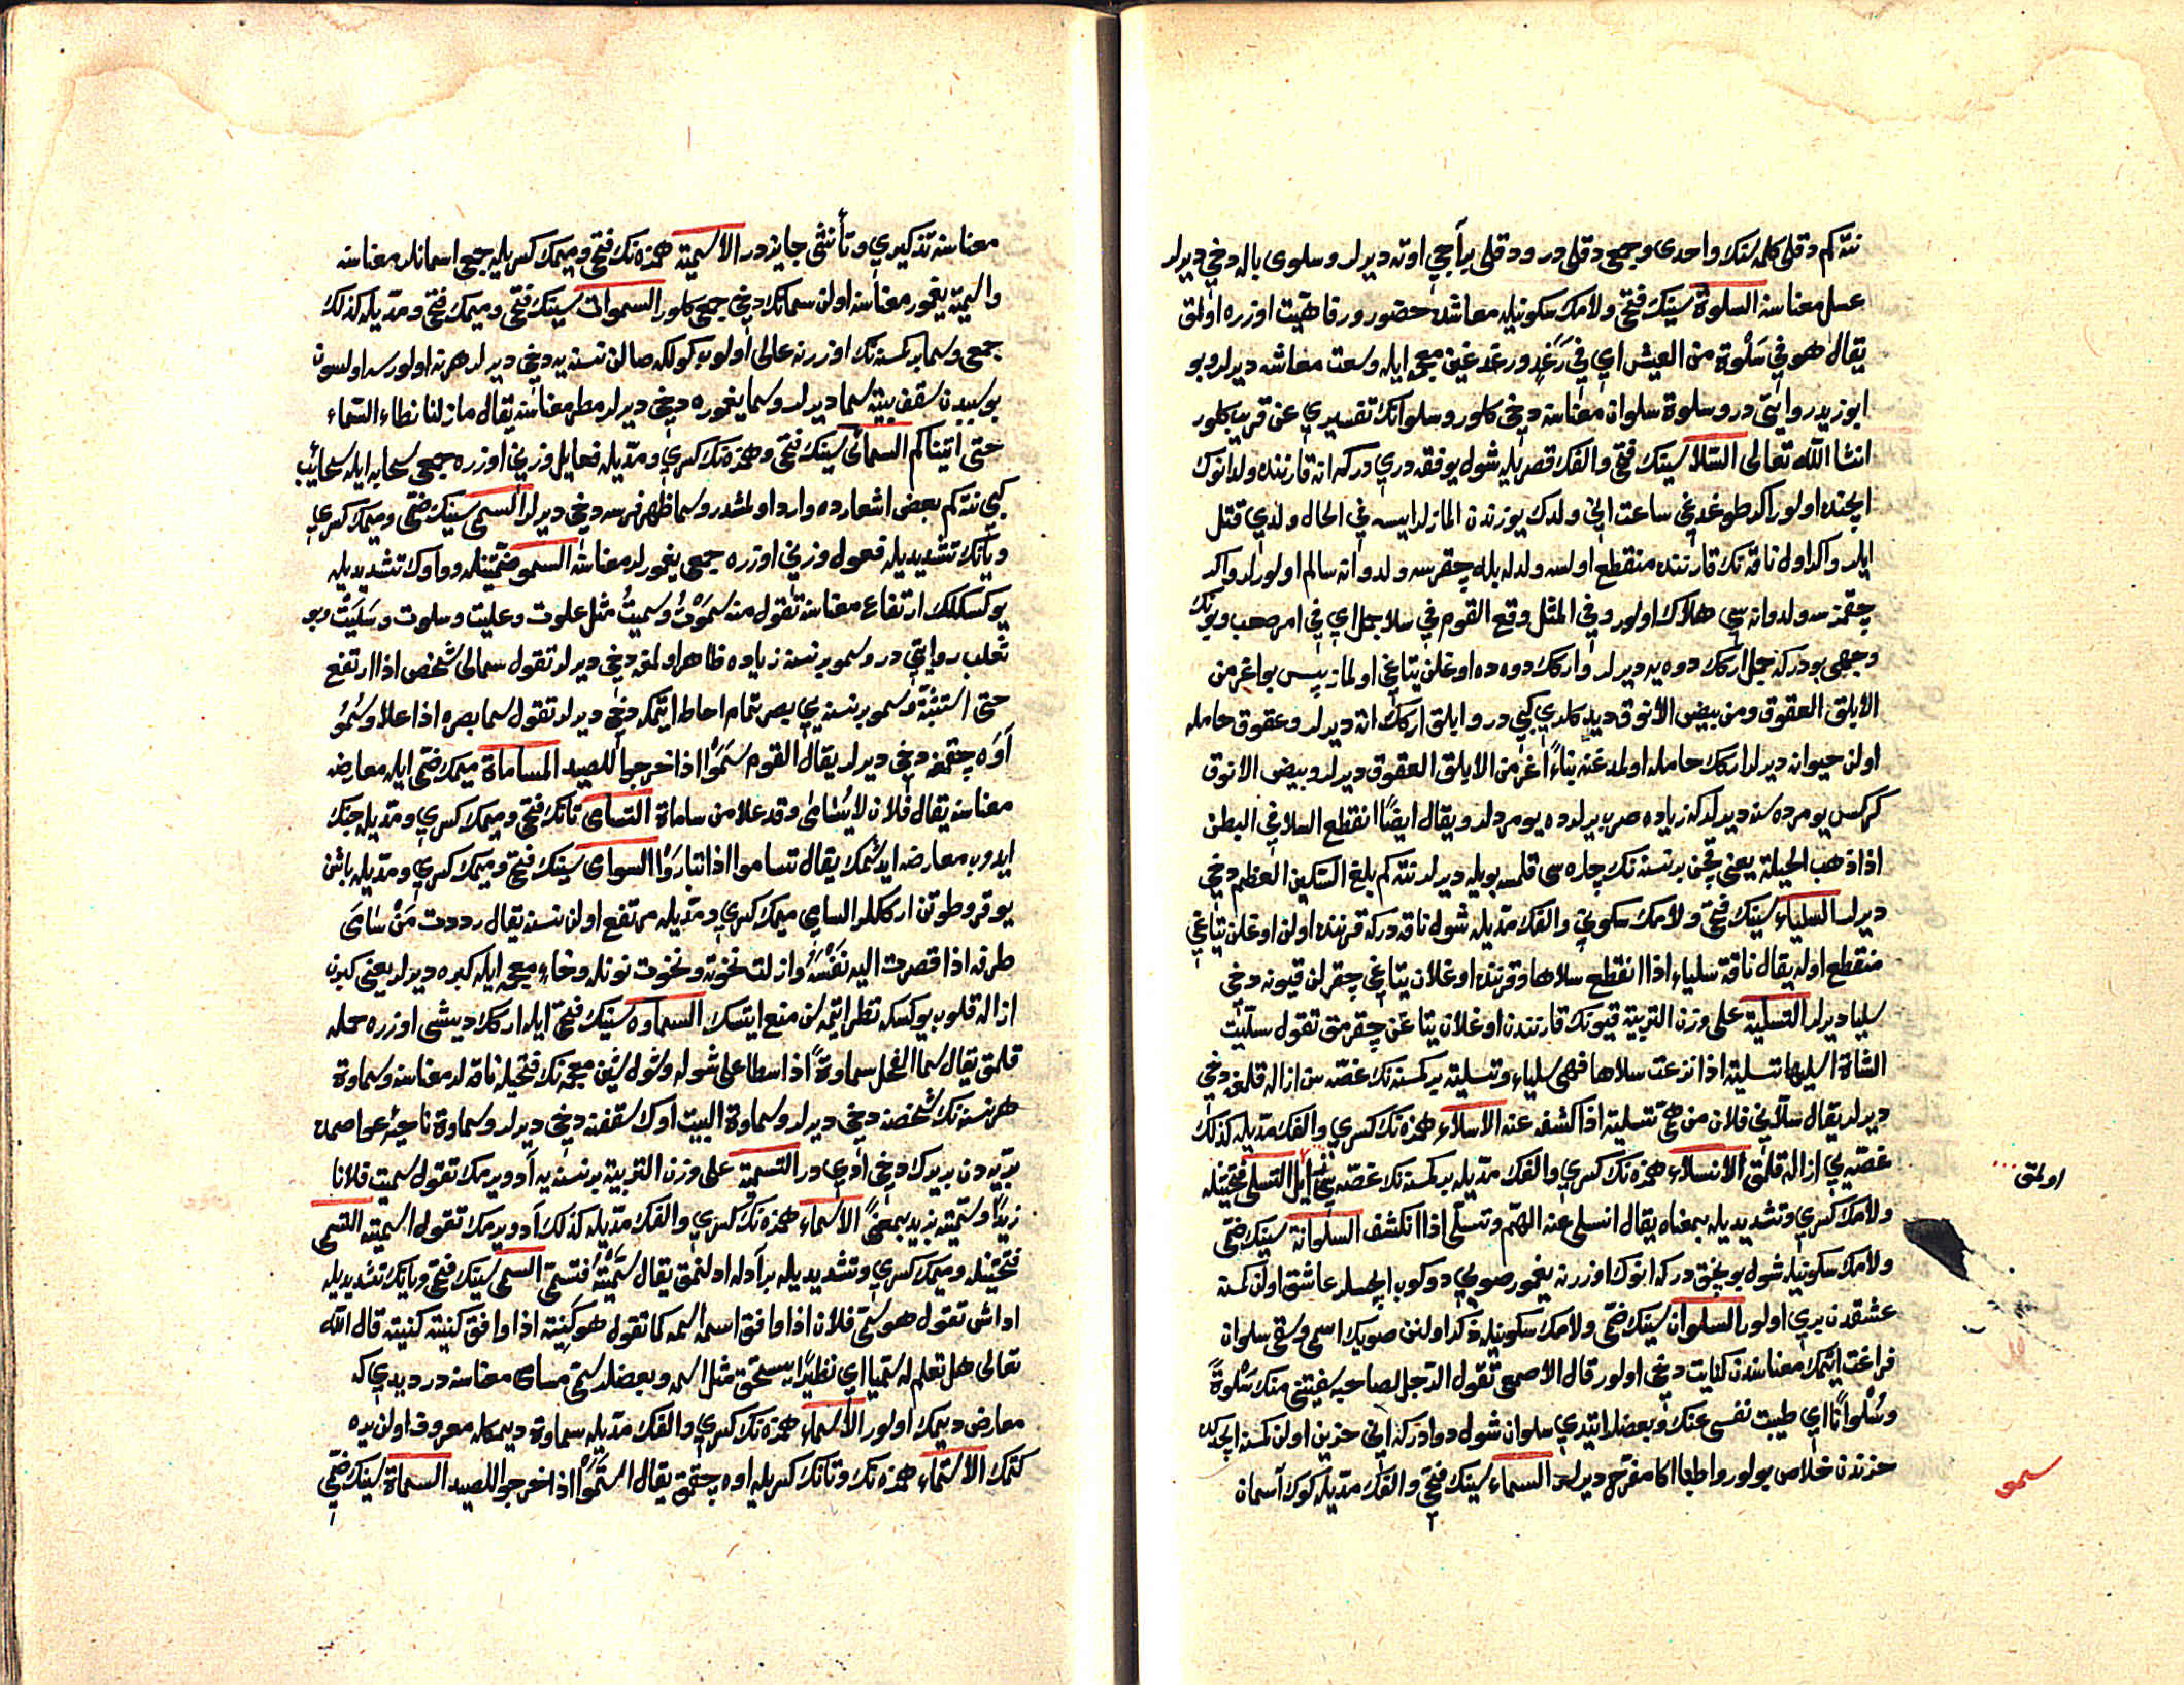 نته كم دقلى كلمه سنك واحدى وجمعى دقلى در ودقلى بر آجى اوته ديرلر وسلوى باله دخي ديرلر
عسل معناسنه السلوة سينك فتحى ولامك سكونيله معاشده حضور ورفاهيت اوزره اولمق
يقال هو في سَلْوة من العيش اي في رَغَدٍ ورغد غين معجمه ايله وسعت معاشه ديرلر وبو
ابو زيد روايتى در وسلوة سلوان معناسنه دخي كلور وسلوانك تفسيري عن قريب كلور
انشا الله تعالى السَّلا سينك فتحى والفك قصريله شول يوفقه دري دركه انه قارننده ولد انوك
ايچنده اولور اكر طوغدغي ساعت انى ولدك يوزندن المازلر ايسه في الحال ولدي قتل
ايلر واكر اول ناقه نك قارننده منقطع اولسه ولدله بله چقرسه ولد وانه سالم اولورلر واكر
چقمزسه ولد وانه سي هلاك اولور وفي المثل وقع القوم في سلا جمل اي في امر صعب وبونك
وجهى بودركه جمل ارككدوه يه ديرلر وارككدوه ده اوغلن يتاغي اولماز پس بو اغرّ من
الابلق العقوق ومن بيض الأنوق ديد كلري كبي در وابلق ارككاته ديرلر وعقوق حامله
اولن حيوانه ديرلر اركك حامله اولمدغنه بناءً اعزّ من الابلق العقوق ديرلر وبيض الانوق
كركس يومرده سنه ديرلركه زياده صرب يرلرده يومردلر ويقال ايضًا انقطع السلا في البطن
اذا ذهب الحيلة يعنى قچن بر نسنه نك چاره سى قلمسه بويله ديرلر نته كم بلغ السّكين العظم دخي
ديرلر السلياء سينك فتحى ولامك سكوني والفك مدّيله شول ناقه دركه قرننده اولن اوغلن يتاغي
منقطع اوله يقال ناقة سلياء اذا انقطع سلاها وقرننده اوغلان يتاغي چقرلن قيونه دخي
سليا ديرلر التسلية على وزن التربية قيونك قارنندن اوغلان يتاغن چقرمق تقول سلّيت
الشاة اسليها تسلية اذا نزعت سلاها فهى سلياء وتسلية بر كمسه نك غصّه سن ازاله قلمغه دخي
ديرلر يقال سلّاني فلان من همّى تسلية اذا كشفه عنه الاسلاء همزه نك كسري والفك مدّيله كذلك
غصّه يي ازاله قلمق الانسلاء همزه نك كسري والفك مدّيله بر كمسه نك غصّه سى زايل التسلى فتحتيله
ولامك كسري وتشديديله بمعناه يقال انسلى عنه الهمّ وتسلّى اذا انكشف السلوانة سينك ضمّى
ولامك سكونيله شول بونجق دركه انوك اوزرنه يغمور صويي دوكوب ايچسلر عاشق اولن كمسه
عشقدن بري اولور السلوان سينك ضمّى ولامك سكونيله ذكر اولنن صويك اسمى وسقى سلوان
فراغت ايتمك معناسندن كنايت دخى اولور قال الأصمعى تقول الرّجل لصاحبه سقيتنى منك سَلْوةً
وسُلْوانًا اي طيبت نفسى عنك وبعضلر ايتدي سلوان شول دوادركه انى حزين اولن كمسه ايچيجك
حزندن خلاص بولور واطبا اكا مفرّح ديرلر السماء سينك فتحى والفك مدّيله كوك آسمان
اولمق
سمو
معناسنه تذكيري وتأنثى جايزدر الأسمية همزه نك فتحى وميمك كسريله جمعى اسمانلر معناسنه
واسمية يغمور معناسنه اولن سمانك دخى جمعى كلور السموات سينك فتحى وميمك فتحى ومدّيله كذلك
جمعى وسما بر كمسنه نك اوزرنه عالى اولوب كولكه صالن نسنه يه دخى ديرلر هر نه اولورسه اولسون
بو سببدن سقف بيته سما ديرلر وسما يغموره دخى ديرلر مطر معناسنه يقال ما زلنا نطاء السّماء
حتى اتيناكم السمائى سينك فتحى وهمزه نك كسري ومدّيله فعايل وزني اوزره جمعى سحابه ايله سحائب
كبي نته كم بعض اشعارده وارد اولمشدر وسما ظهر فرسه دخي ديرلر السمى سينك ضمّى وميمك كسري
ويانك تشديديله فعول وزني اوزره جمعى يغمورلر معناسنه السمو ضمّتيله وواوك تشديديله
يوكسكلك ارتفاع معناسنه تقول منه سَموْتُ وسميتُ مثل علوت وعليت وسلوت وسَلَيتُ وبو
ثعلب روايتي در وسمو بر نسنه زياده ظاهر اولمغه دخى ديرلر تقول سمالى شخص اذا ارتفع
حتى استثبتّه وسمو بر نسنه يي بصر بتمام احاطه ايتمكه دخى ديرلر تقول سما بصره اذا علا وسُموُ
آوه چقمغه دخى ديرلر يقال القوم سَمَوْا اذا خرجوا للصيد المساماة ميمك ضمّى ايله معارضه
معناسنه يقال فلان لا يُسامٰى وقد علا من ساماه التسامى تانك فتحى وميمك كسري ومدّيله جنك
ايدوب معارضه ايدشمك يقال تساموا اذا تبارَوْا السوامى سينك فتحى وميمك كسري ومدّيله باشن
يوقرو طوتن ارككلر السامى ميمك كسري ومدّيله مرتفع اولن نسنه يقال رددت مَنْ سَامَى
طرفه اذا قصرت اليه نَفْسَهُ وازلت نخوته ونخوت نونله وخاء معجمه ايله كبره ديرلر يعنى كبرن
ازاله قلوب يوكسكه نظر ايتمه سن منع ايتسك السماوه سينك فتحى ايله اركك ديشى اوزره حمله
قلمق يقال سما الفحل سماوةً اذا سطا على شوله وشول شين معجمه نك فتحيله ناقه لر معناسنه وسماوة
هر نسنه نك شخصنه دخي ديرلر وسماوة البيت اوك سقفنه دخي ديرلر وسماوة ناحيهٔ عواصمده
بريه دن بر يرك دخى ادي در التسمية على وزن التربية بر نسنه يه آد ويرمك تقول سميت فلانا
زيدًا وسمّيته بزيد بمعنىً الأسماء همزه نك كسري والفك مدّيله كذلك آد ويرمك تقول اسميته التسمى
فتحتيله وميمك كسري وتشديديله بر آدله ادلنمق يقال سَمّيتُهُ فتسمّى السمى سينك فتحى ويانك تشديديله
اداش تقول هو سمىّ فلان اذا وافق اسمه اسمه كما تقول هو كنيّه اذا وافق كنيته كنيته قال الله
تعالى هل تعلم له سميّا اي نظيرًا يستحق مثل اسمه وبعضلر سمىّ مسامى معناسنه در ديدي كه
معارض ديمك اولور الأسماء همزه نك كسري والفك مدّيله سماوة ديمكله معروف اولن يره
كتمك الاستماء همزه نك وتانك كسريله اوه چقمق يقال استَمَوْا اذا خرجوا للصيد السماة سينك ضمّى